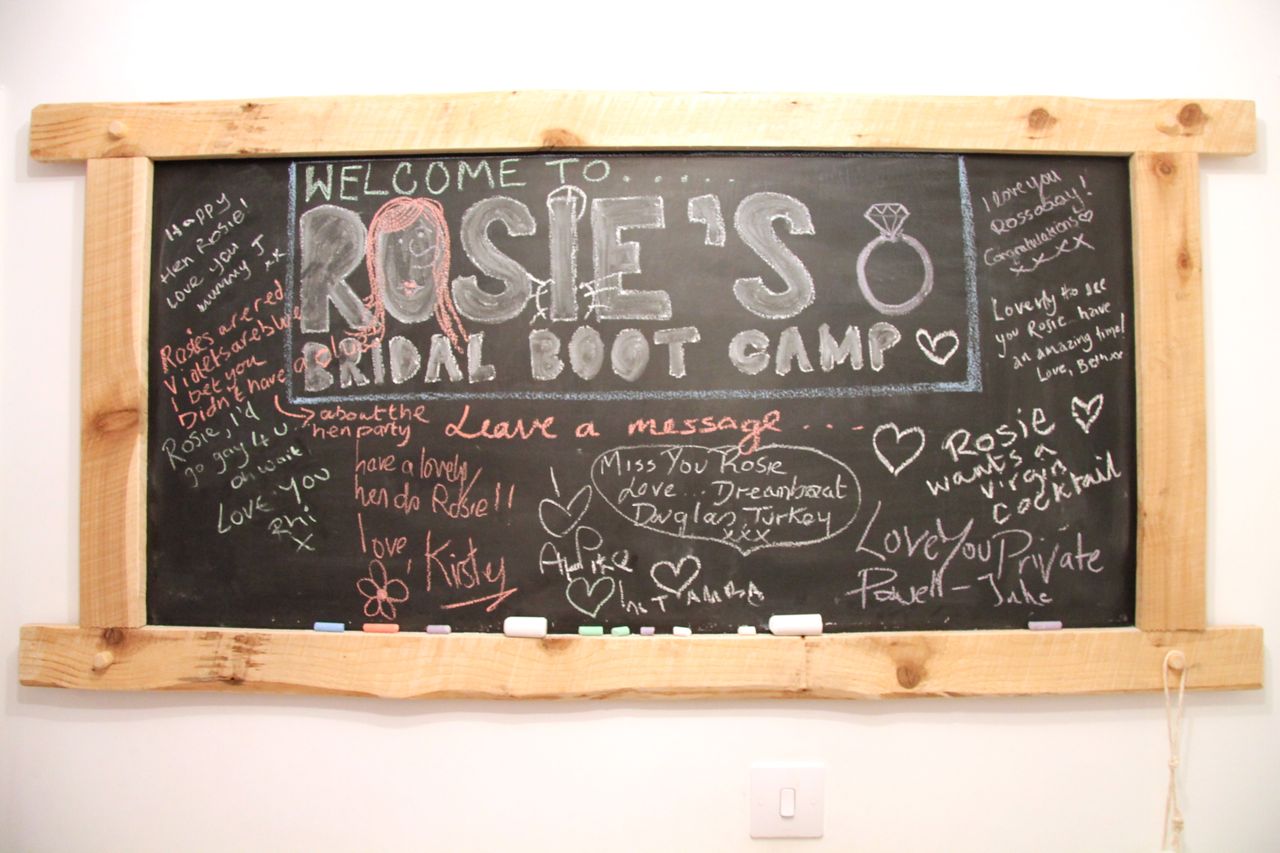 WELCOME TO......
ROSIE'S
BRIDAL BOOT CAMP
Leave a message....
Happy
Hen Rosie!
Love you
mummy J
xx
Rosies are red
Violets are blue
I bet you
Didn't have a clue
about the
hen party
Rosie, I'd
go gay 4 U.
oh wait
Love You
Phi
X
have a lovely
hen do Rosie!!
love,
Kirsty
Miss You Rosie
Love... Dreamboat
Douglas, Turkey
xxx
I
Love You Private
Powell - Juke
Rosie
wants a
virgin
cocktail
I love you
Rossagay!
Congratulations
xxxx
Lovely to see
you Rosie have
an amazing time!
Love, Beth xx